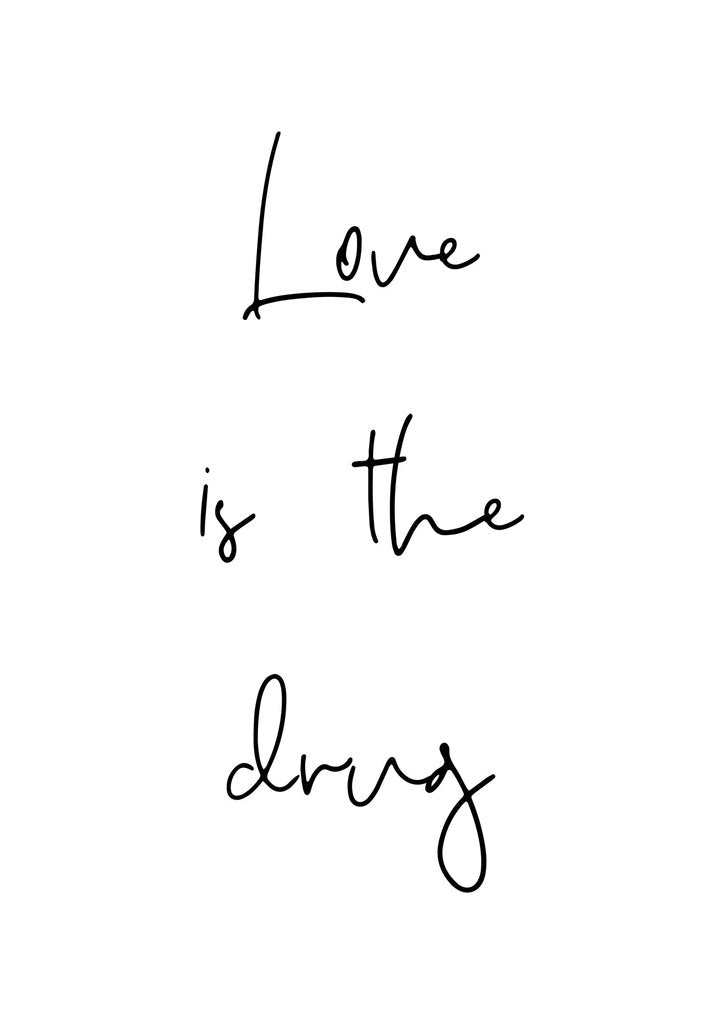 Love
is the
drug